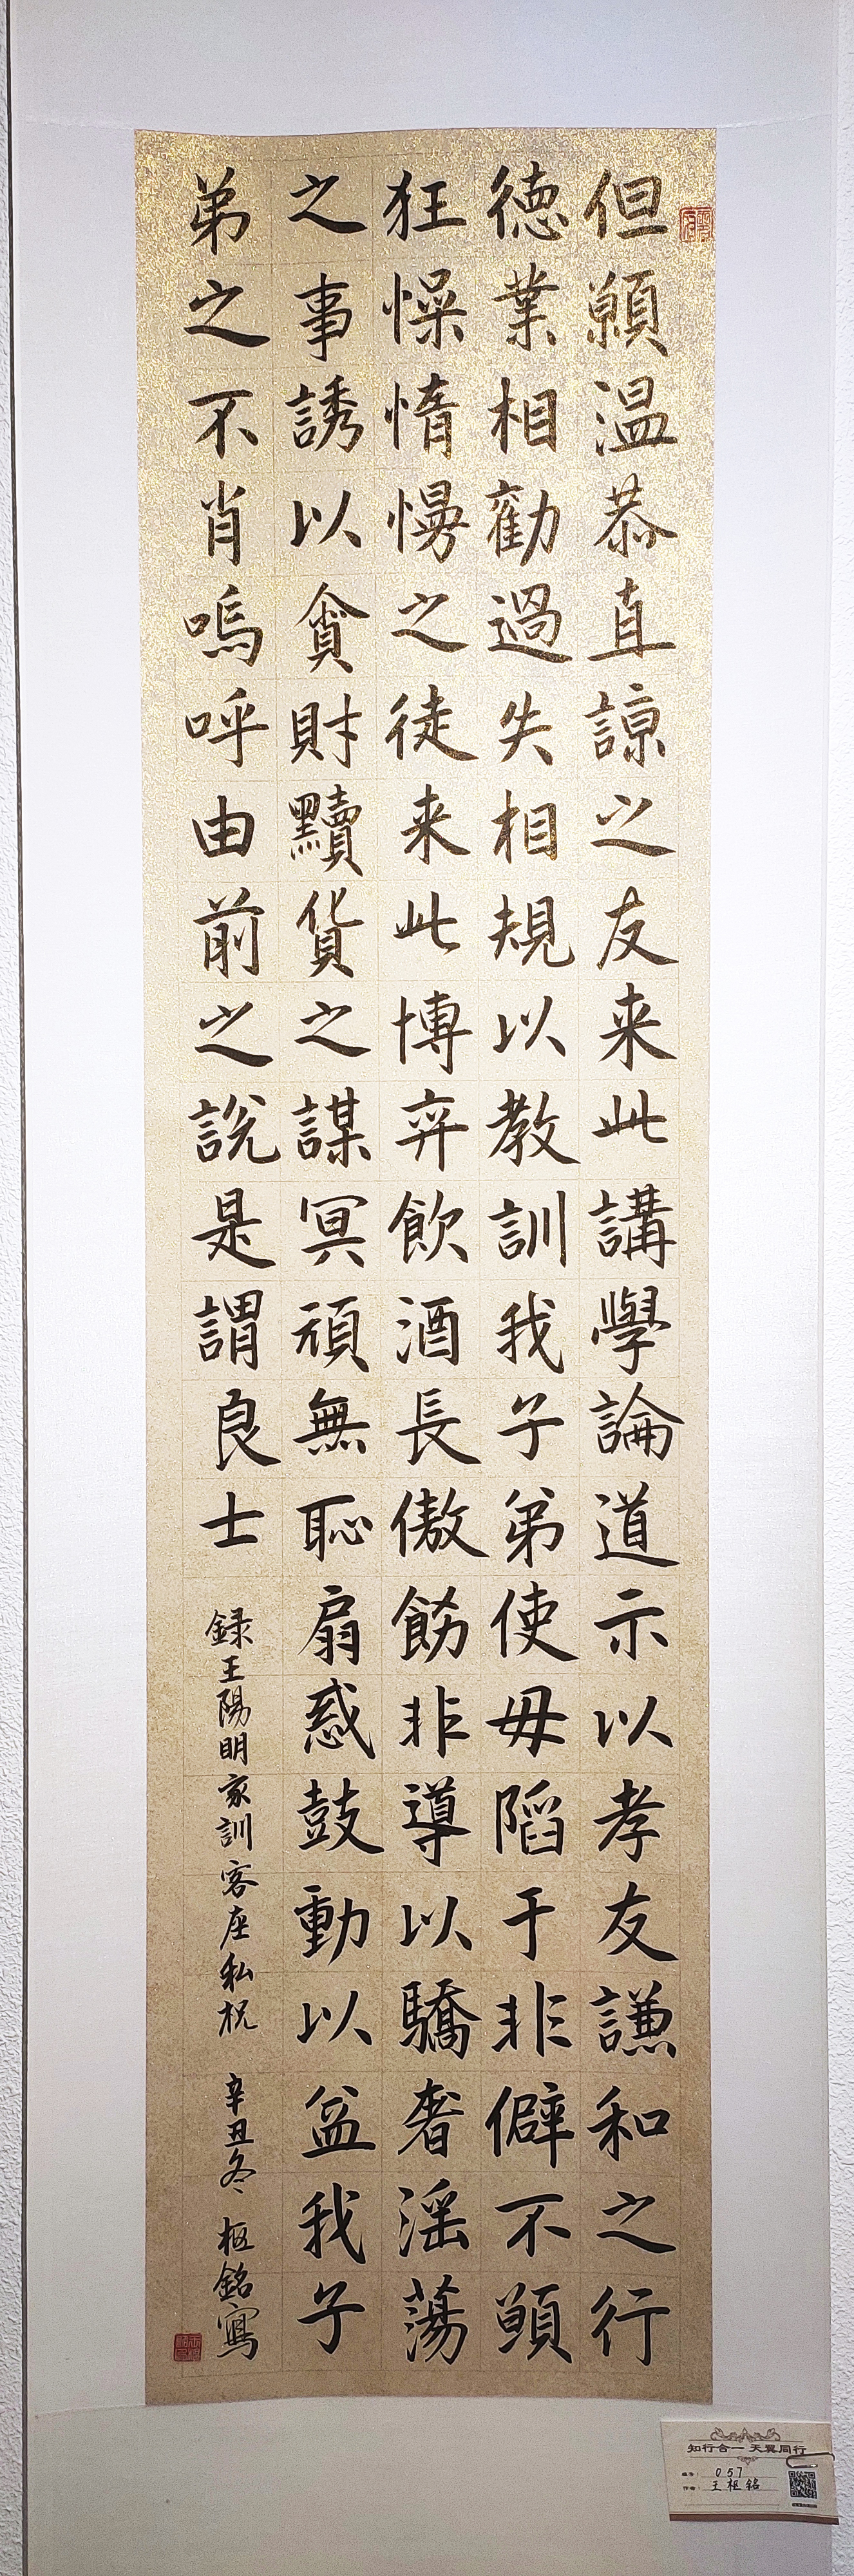 但願温恭直諒之友来此講學論道示以孝友謙和之行
徳業相勸過失相規以教訓我子弟使毋陷于非僻不願
狂懆惰慢之徒来此博弈飲酒長傲飾非導以驕奢淫蕩
之事誘以貪財黷貨之謀冥頑無恥扇惑鼓動以益我子
弟之不肖嗚呼由前之說是謂良士
録王陽明家訓客座私祝 辛丑冬 枢銘寫
知行合一 天翼同行
编号： 057
作者： 王枢铭